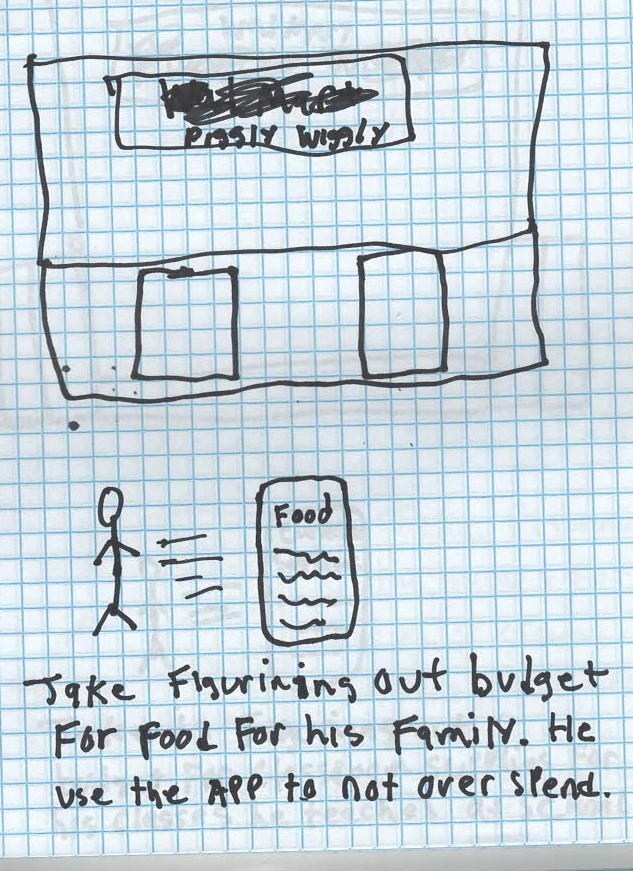 Piggly Wiggly
Food
Jake Figurining out budget
For Food For his Family. He
use the APP to not over spend.